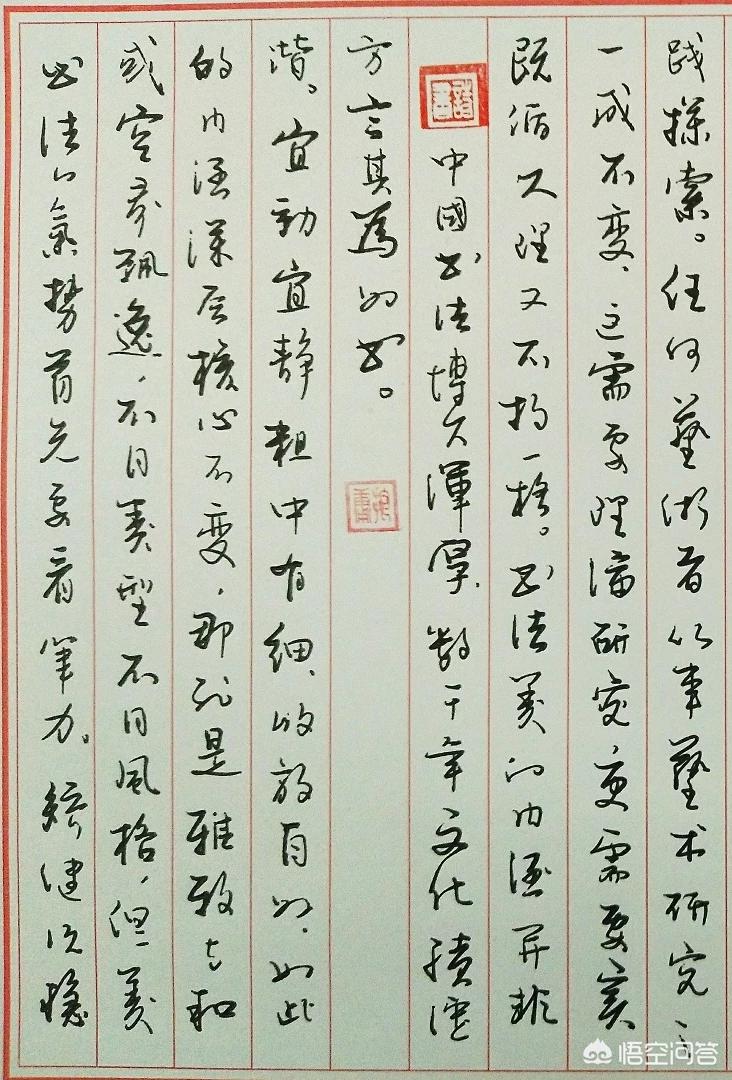 书法的氣势首先要看笔力。矫健沉稳
或空灵飘逸,不同类型不同风格,但美
的内涵深层核心不变,那就是雅致与和
谐。宜動宜静粗中有细、收放自如,如此
方言其為好书。
中國书法博大渾厚,数千年文化積淀
既循天理又不拘一格。书法美的内涵并非
一成不变、这需要理论研究更需要实
践探索。任何藝術者从事藝术研究
悟空问答